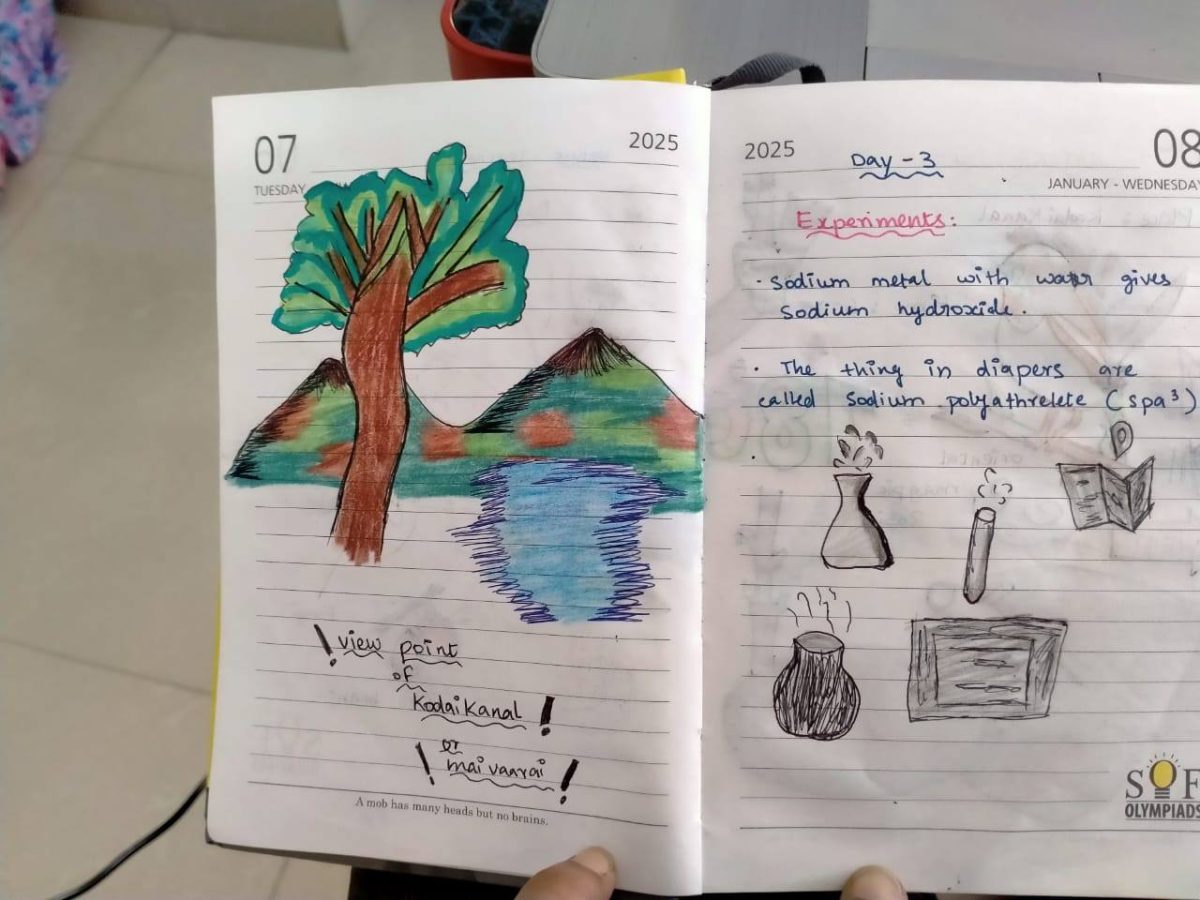 07
TUESDAY
2025
! view point
of
KodaiKanal !
or
! mai vaarai !
A mob has many heads but no brains.
2025
08
JANUARY - WEDNESDAY
Day - 3
Experiments:
· Sodium metal with water gives
Sodium hydroxide.
· The thing in diapers are
called Sodium polyathrelete (spa³)
SOF
OLYMPIADS